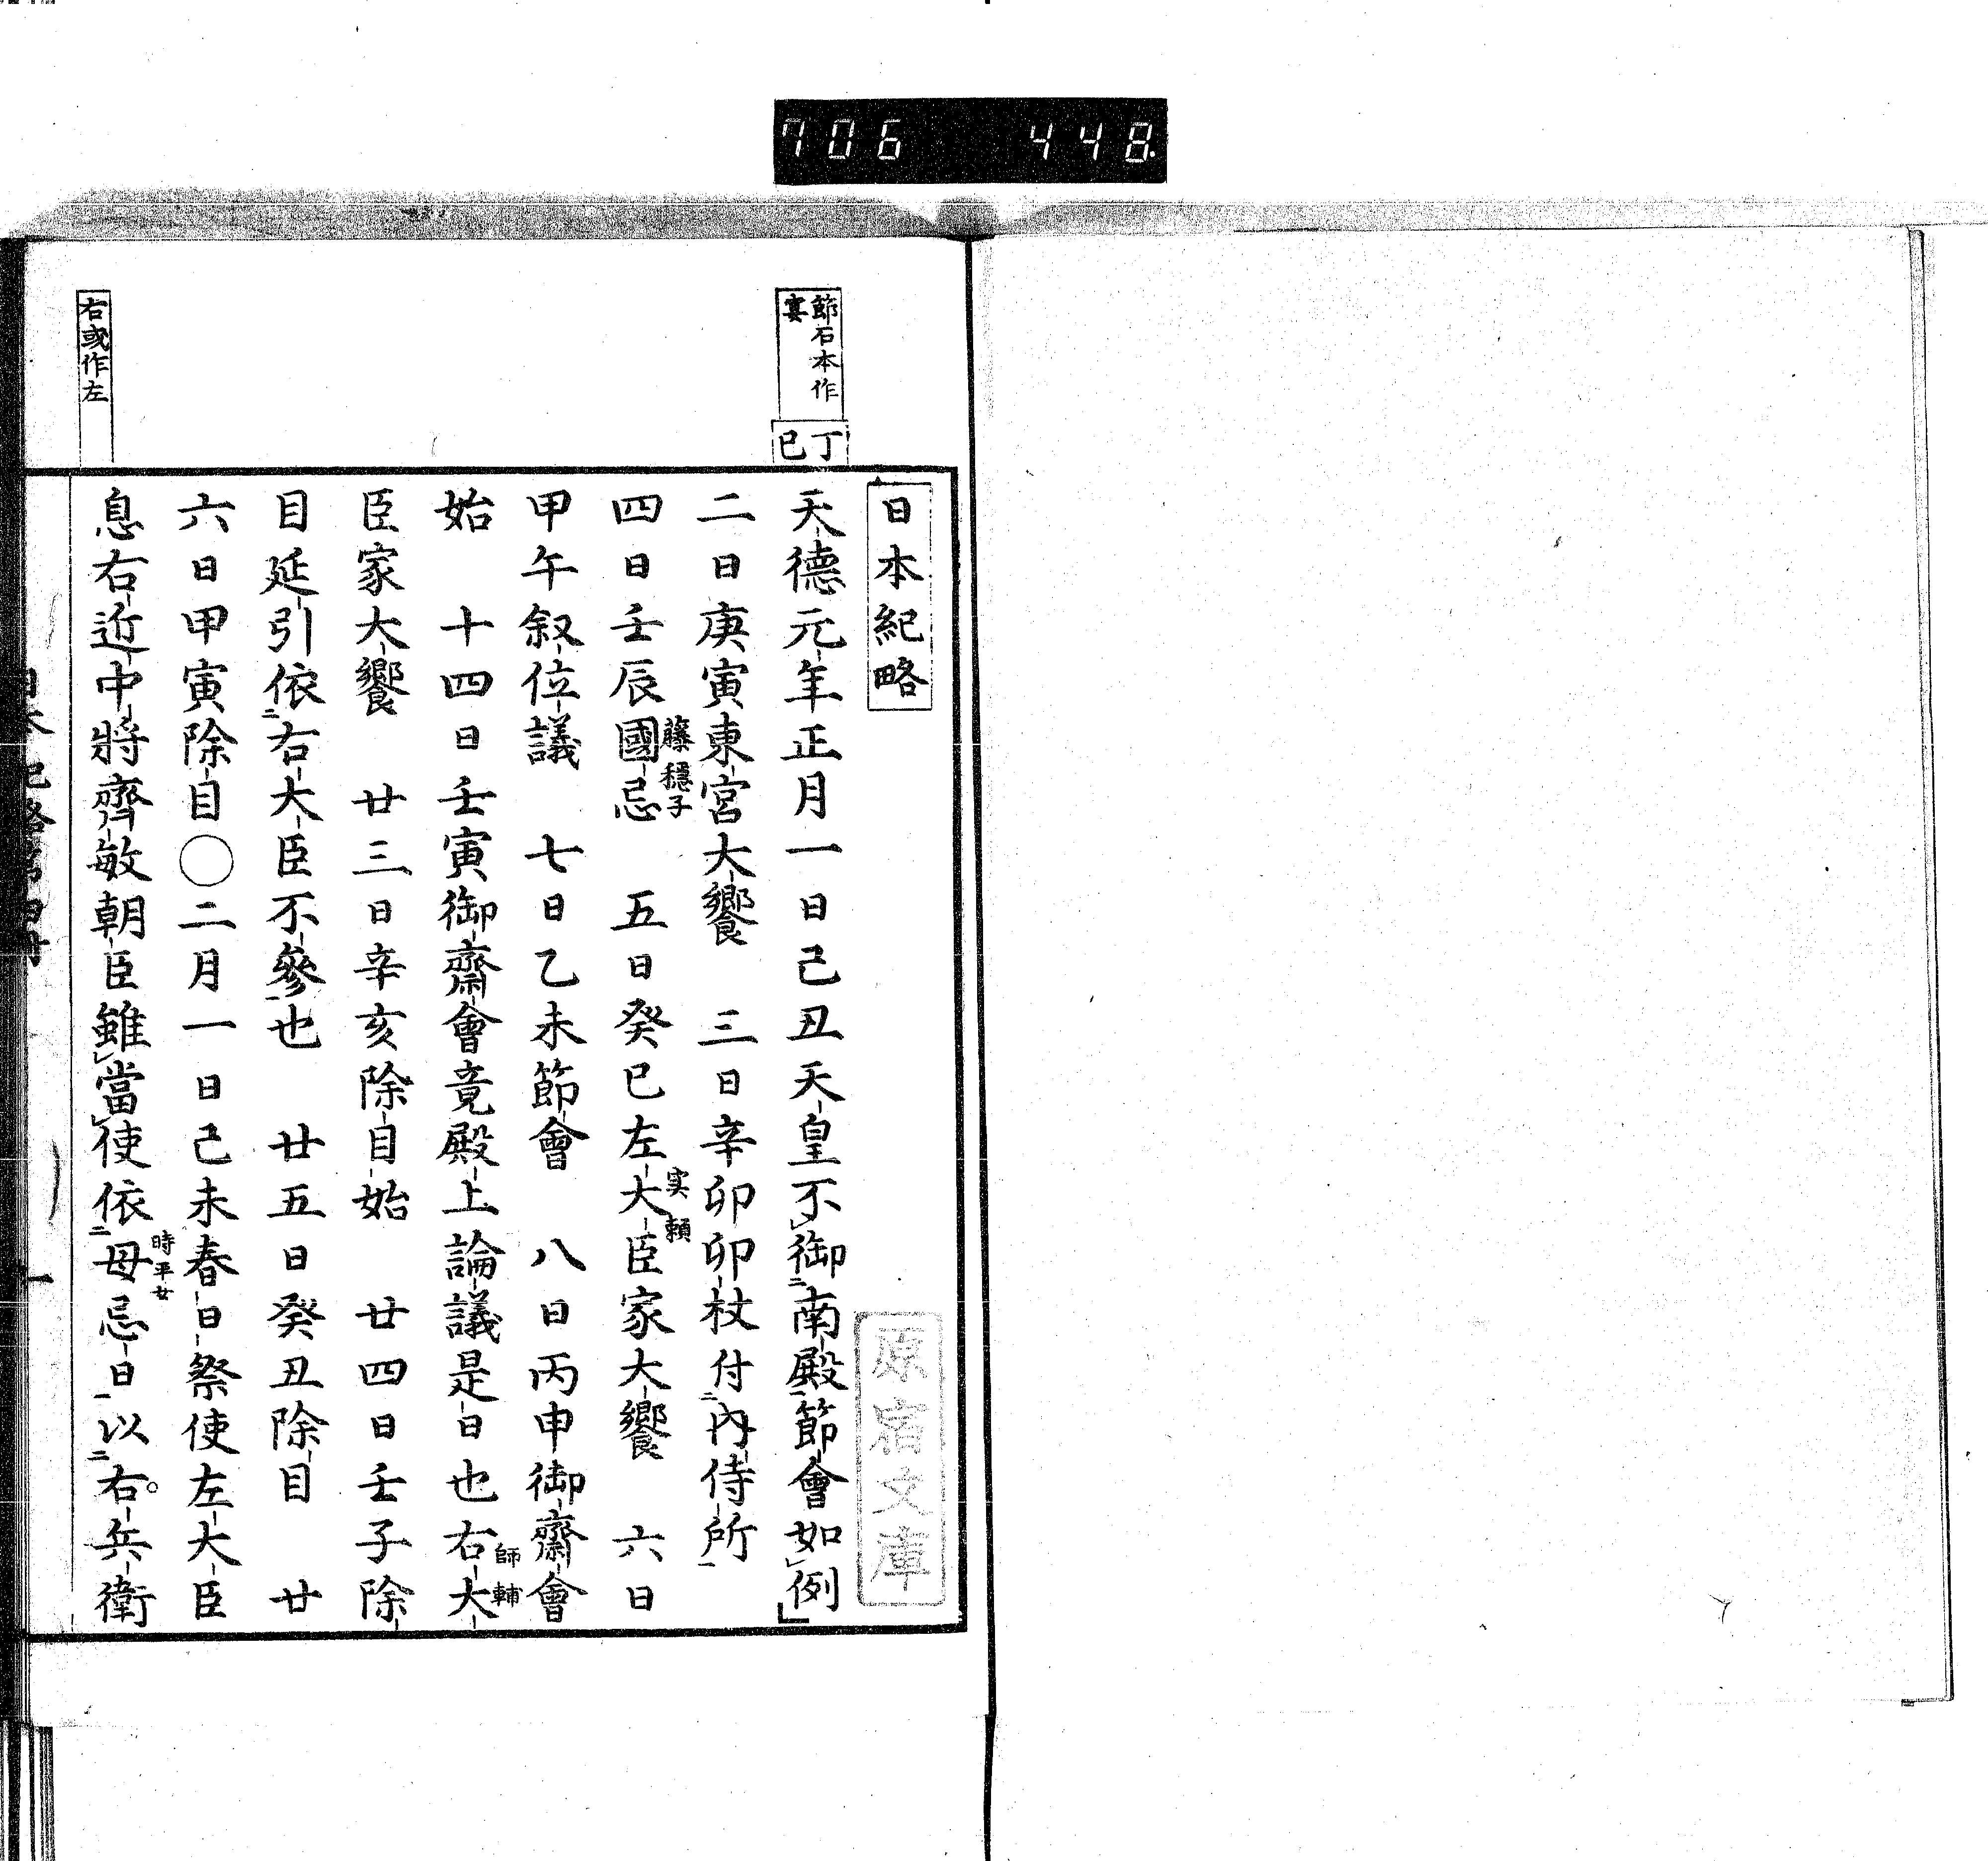 706 448.
節石本作
宴
丁
巳
日本紀略
天德元年正月一日己丑天皇不御南殿節會如例
二日庚寅東宮大饗　三日辛卯卯杖付內侍所
四日壬辰國忌　五日癸巳左大臣家大饗　六日
藤穩子
実頼
甲午叙位議　七日乙未節會　八日丙申御齋會
始　十四日壬寅御齋會竟殿上論議是日也右大
師輔
臣家大饗　廿三日辛亥除目始　廿四日壬子除
目延引依右大臣不參也　廿五日癸丑除目　廿
六日甲寅除目〇二月一日己未春日祭使左大臣
息右近中將齊敏朝臣雖當使依母忌日以右兵衛
時平女
右或作左
原宿文庫
一